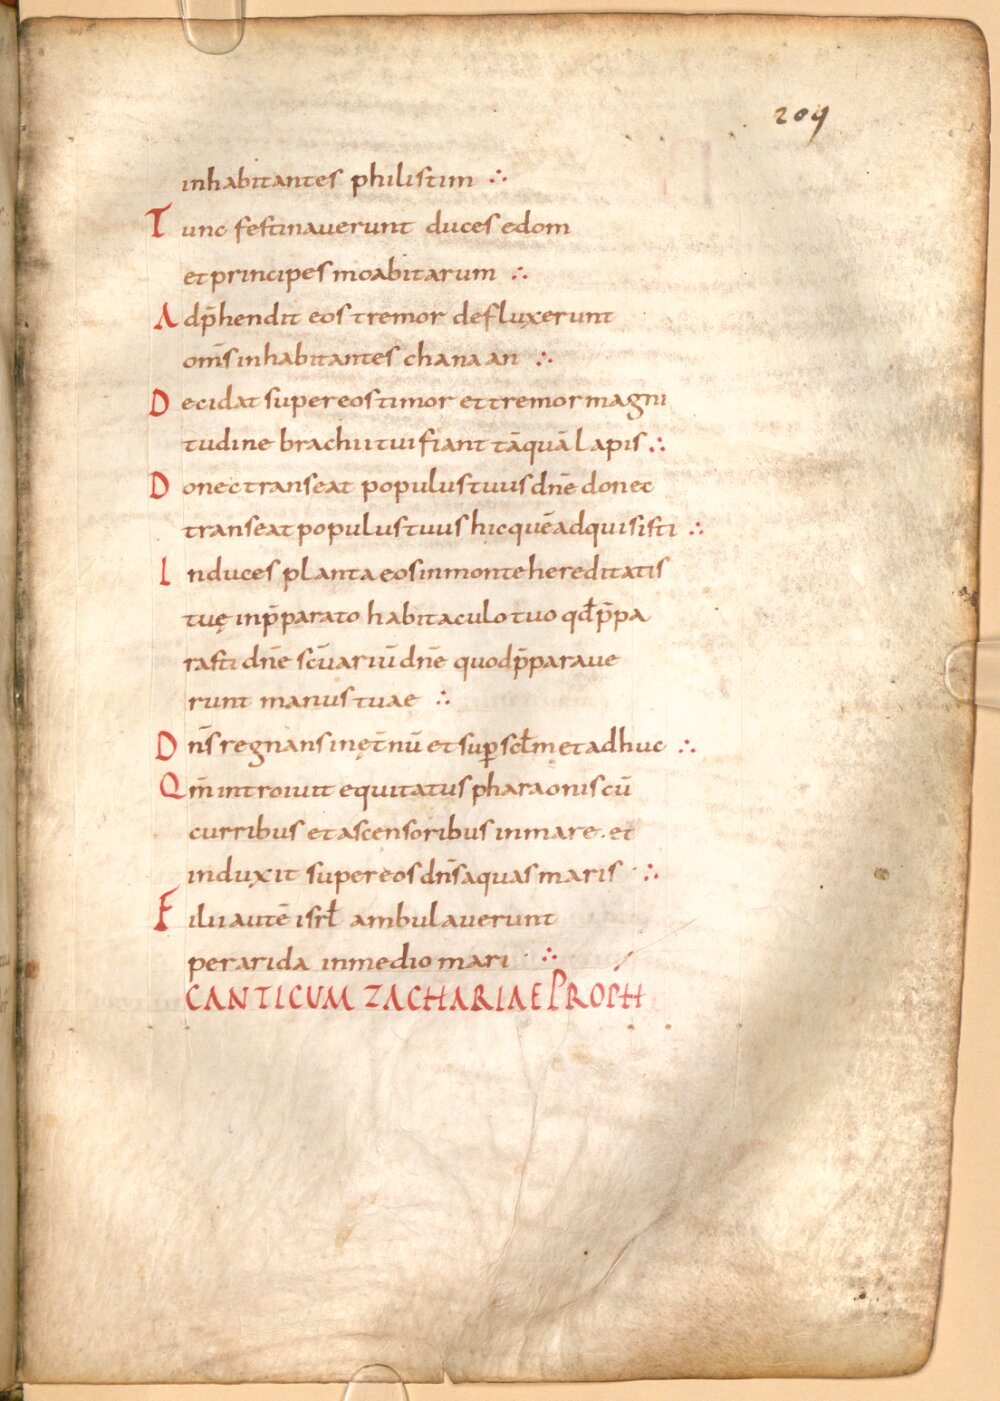 209
inhabitantes philistim ∴
Tunc festinauerunt duces edom
et principes moabitarum ∴
Adp̄hendit eos tremor defluxerunt
om̄s inhabitantes chanaan ∴
Decidat super eos timor et tremor magni
tudine brachii tui fiant tāquā lapis ∴
Donec transeat populus tuus dn̄e donec
transeat populus tuus hic quē adquisisti ∴
Induces planta eos in monte hereditatis
tuę in p̄parato habitaculo tuo qđ p̄pa
rasti dn̄e sc̄uariū dn̄e quod p̄paraue
runt manus tuae ∴
Dn̄s regnans in ęt̄nū et sup scłm et adhuc ∴
Qm̄ introiuit equitatus pharaonis cū
curribus et ascensoribus in mare. et
induxit super eos dn̄s aquas maris ∴
Filii autē isrł ambulauerunt
per arida in medio mari ∴
CANTICUM ZACHARIAE PROPH